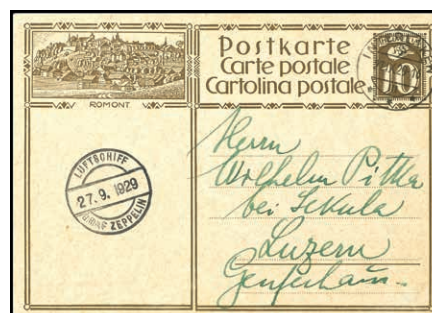 Postkarte
Carte postale
Cartolina postale
10
ROMONT
LUFTSCHIFF
27.9.1929
GRAF ZEPPELIN
Herrn
Wilhelm Pitka
bei Sekula
Luzern